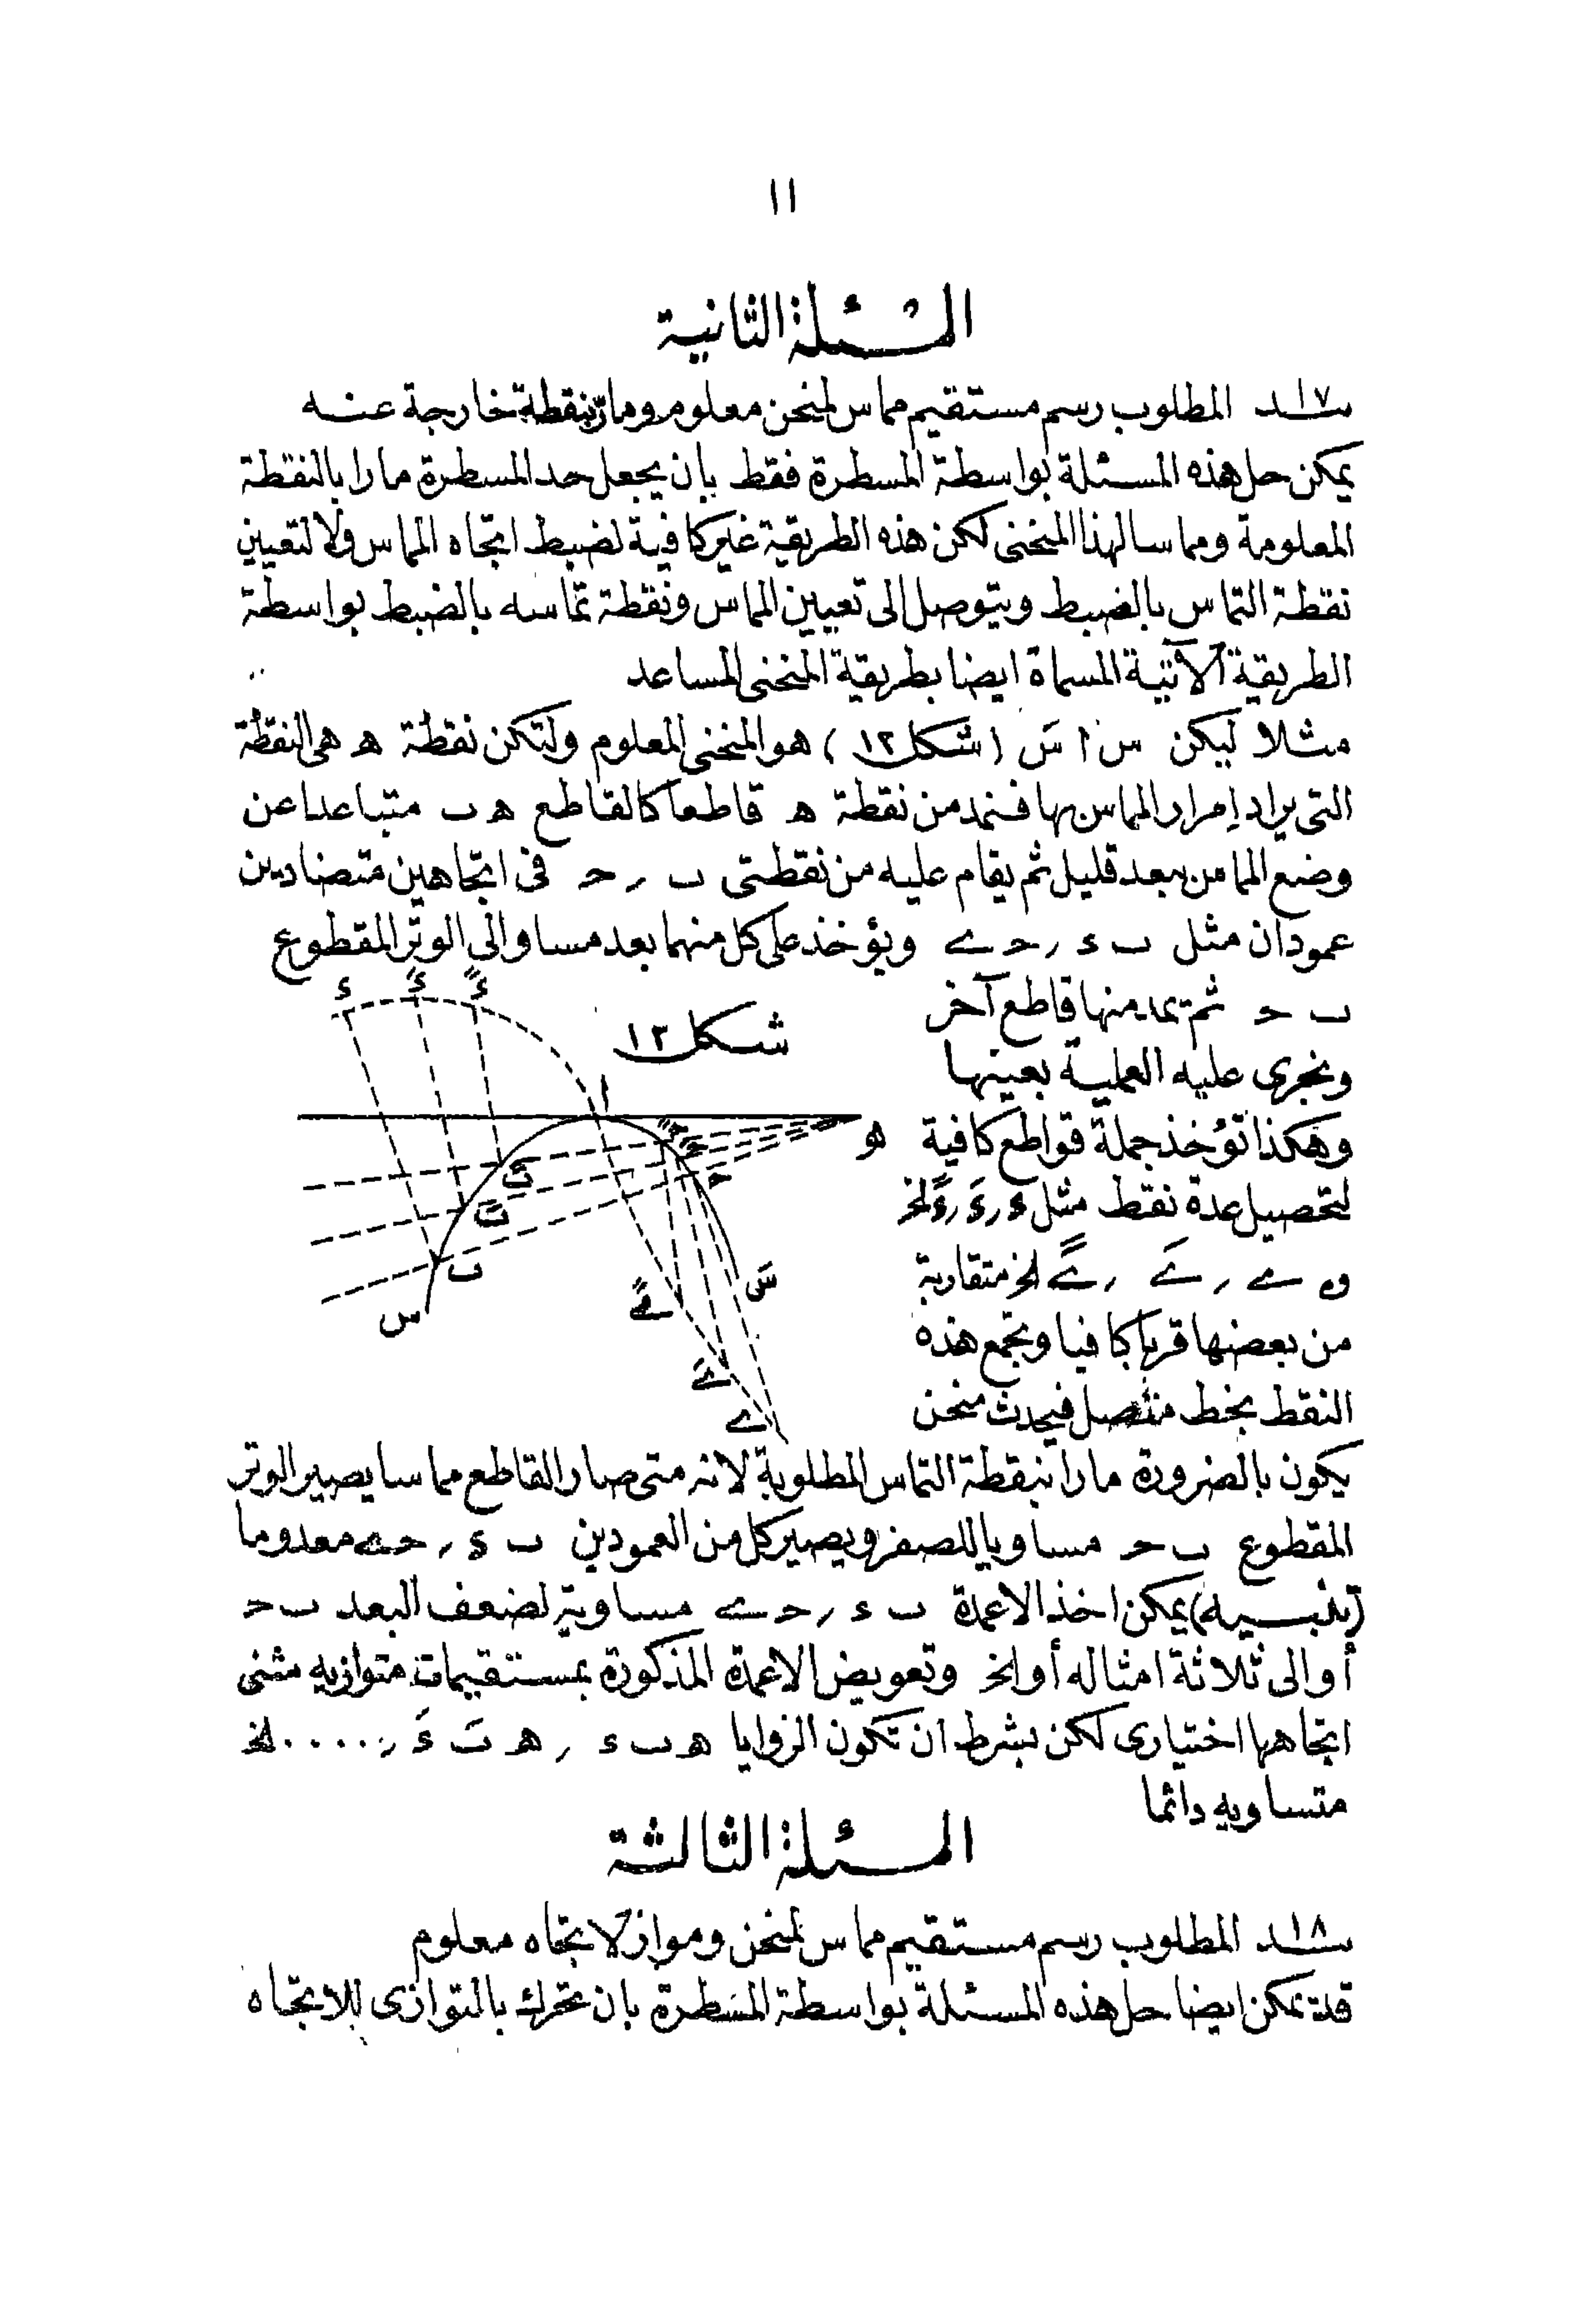 ١١
المسئلة الثانية
١٧ـد المطلوب رسم مستقيم مماس لمنحن معلوم ومارّ بنقطة خارجة عنه
يمكن حل هذه المسئلة بواسطة المسطرة فقط بان يجعل حد المسطرة مارا بالنقطة
المعلومة ومماسا لهذا المنحنى لكن هذه الطريقة غير كافية لضبط اتجاه المماس ولا لتعيين
نقطة التماس بالضبط ويتوصل الى تعيين المماس ونقطة تماسه بالضبط بواسطة
الطريقة الآتية المسماة ايضا بطريقة المنحنى المساعد
مثلا ليكن س ا سَ (شكل ١٢) هو المنحنى المعلوم ولتكن نقطة ه هى النقطة
التى يراد إمرار المماس بها فنمد من نقطة ه قاطعا كالقاطع ه ب متباعدا عن
وضع المماس بعد قليل ثم يقام عليه من نقطتى ب , حـ فى اتجاهين متضادين
عمودان مثل ب ء , حـ ے ويؤخذ على كل منهما بعد مساو الى الوتر المقطوع
ب حـ ثم تمد منها قاطع آخر
ونجرى عليه العملية بعينها
وهكذا تؤخذ جملة قواطع كافية
لتحصيل عدة نقط مثل ء , ءَ , ءً الخ
و ے , ےَ , ےً الخ متقاربة
من بعضها قربا كافيا وتجمع هذه
النقط بخط متصل فيحدث منحن
شكل ١٢
ء ءَ ءً
ا
ه
حـً حـَ حـ
بً
بَ
ب
س
سَ
ےً
ےَ
ے
يكون بالضرورة مارا بنقطة التماس المطلوبة لانه متى صار القاطع مماسا يصير الوتر
المقطوع ب حـ مساويا للصفر ويصير كل من العمودين ب ء , حـ ے معدوما
(تنبيه) يمكن اخذ الاعمدة ب ء , حـ ے مساوية لضعف البعد ب حـ
أو الى ثلاثة امثاله أو الخ وتعويض الاعمدة المذكورة بمستقيمات متوازيه مثنى
اتجاهها اختيارى لكن بشرط ان تكون الزوايا ه ب ء , ه بَ ءَ , ..... الخ
متساويه دائما
المسئلة الثالثة
١٨ـد المطلوب رسم مستقيم مماس لمنحن ومواز لاتجاه معلوم
قد يمكن ايضا حل هذه المسئلة بواسطة المسطرة بان تحرك بالتوازى للاتجاه